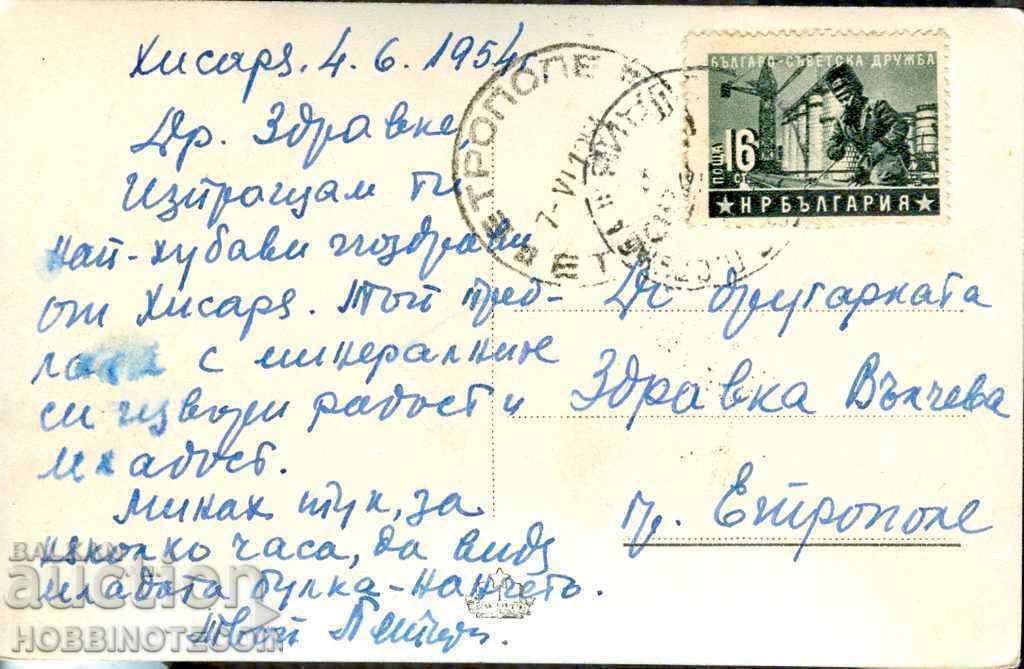 Хисаря. 4. 6. 1954 г.
Др. Здравке,
Изпращам ти
най-хубави поздрави
от Хисаря. Той пред-
лага с минералните
си извори радост и
младост.
Минах тук, за
няколко часа, да видя
младата булка-Нанчето.
Твой Петър.
БЪЛГАРО-СЪВЕТСКА ДРУЖБА
ПОЩА
16
СТ
★ НР БЪЛГАРИЯ ★
ЕТРОПОЛЕ
7-VI
До другарката
Здравка Вълчева
гр. Етрополе
BALKAN
auction
HOBBINOTE.COM